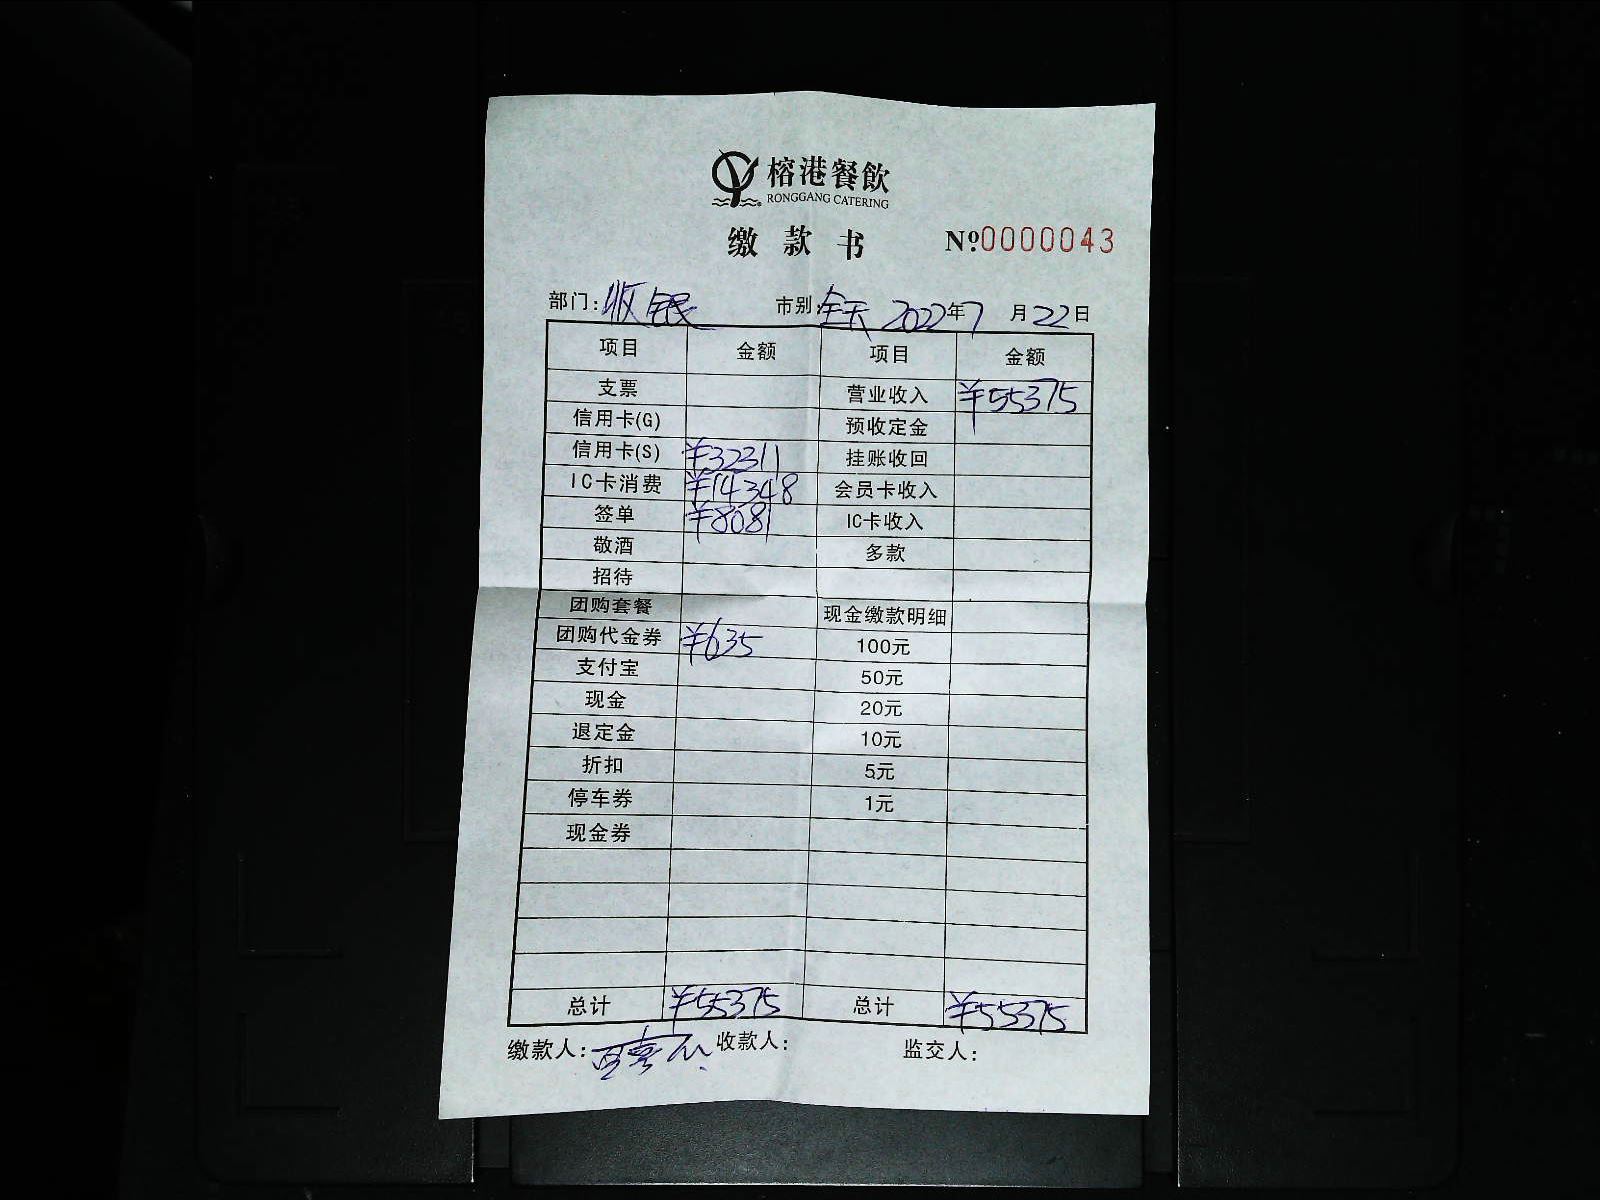 榕港餐飲
RONGGANG CATERING
缴款书 №0000043
部门：收银 市别：全天 2022年7月22日
项目 金额 项目 金额
支票 营业收入 ¥55375
信用卡(G) 预收定金
信用卡(S) ¥32311 挂账收回
IC卡消费 ¥14348 会员卡收入
签单 ¥8081 IC卡收入
敬酒 多款
招待
团购套餐 现金缴款明细
团购代金券 ¥635 100元
支付宝 50元
现金 20元
退定金 10元
折扣 5元
停车券 1元
现金券
总计 ¥55375 总计 ¥55375
缴款人： 收款人： 监交人：